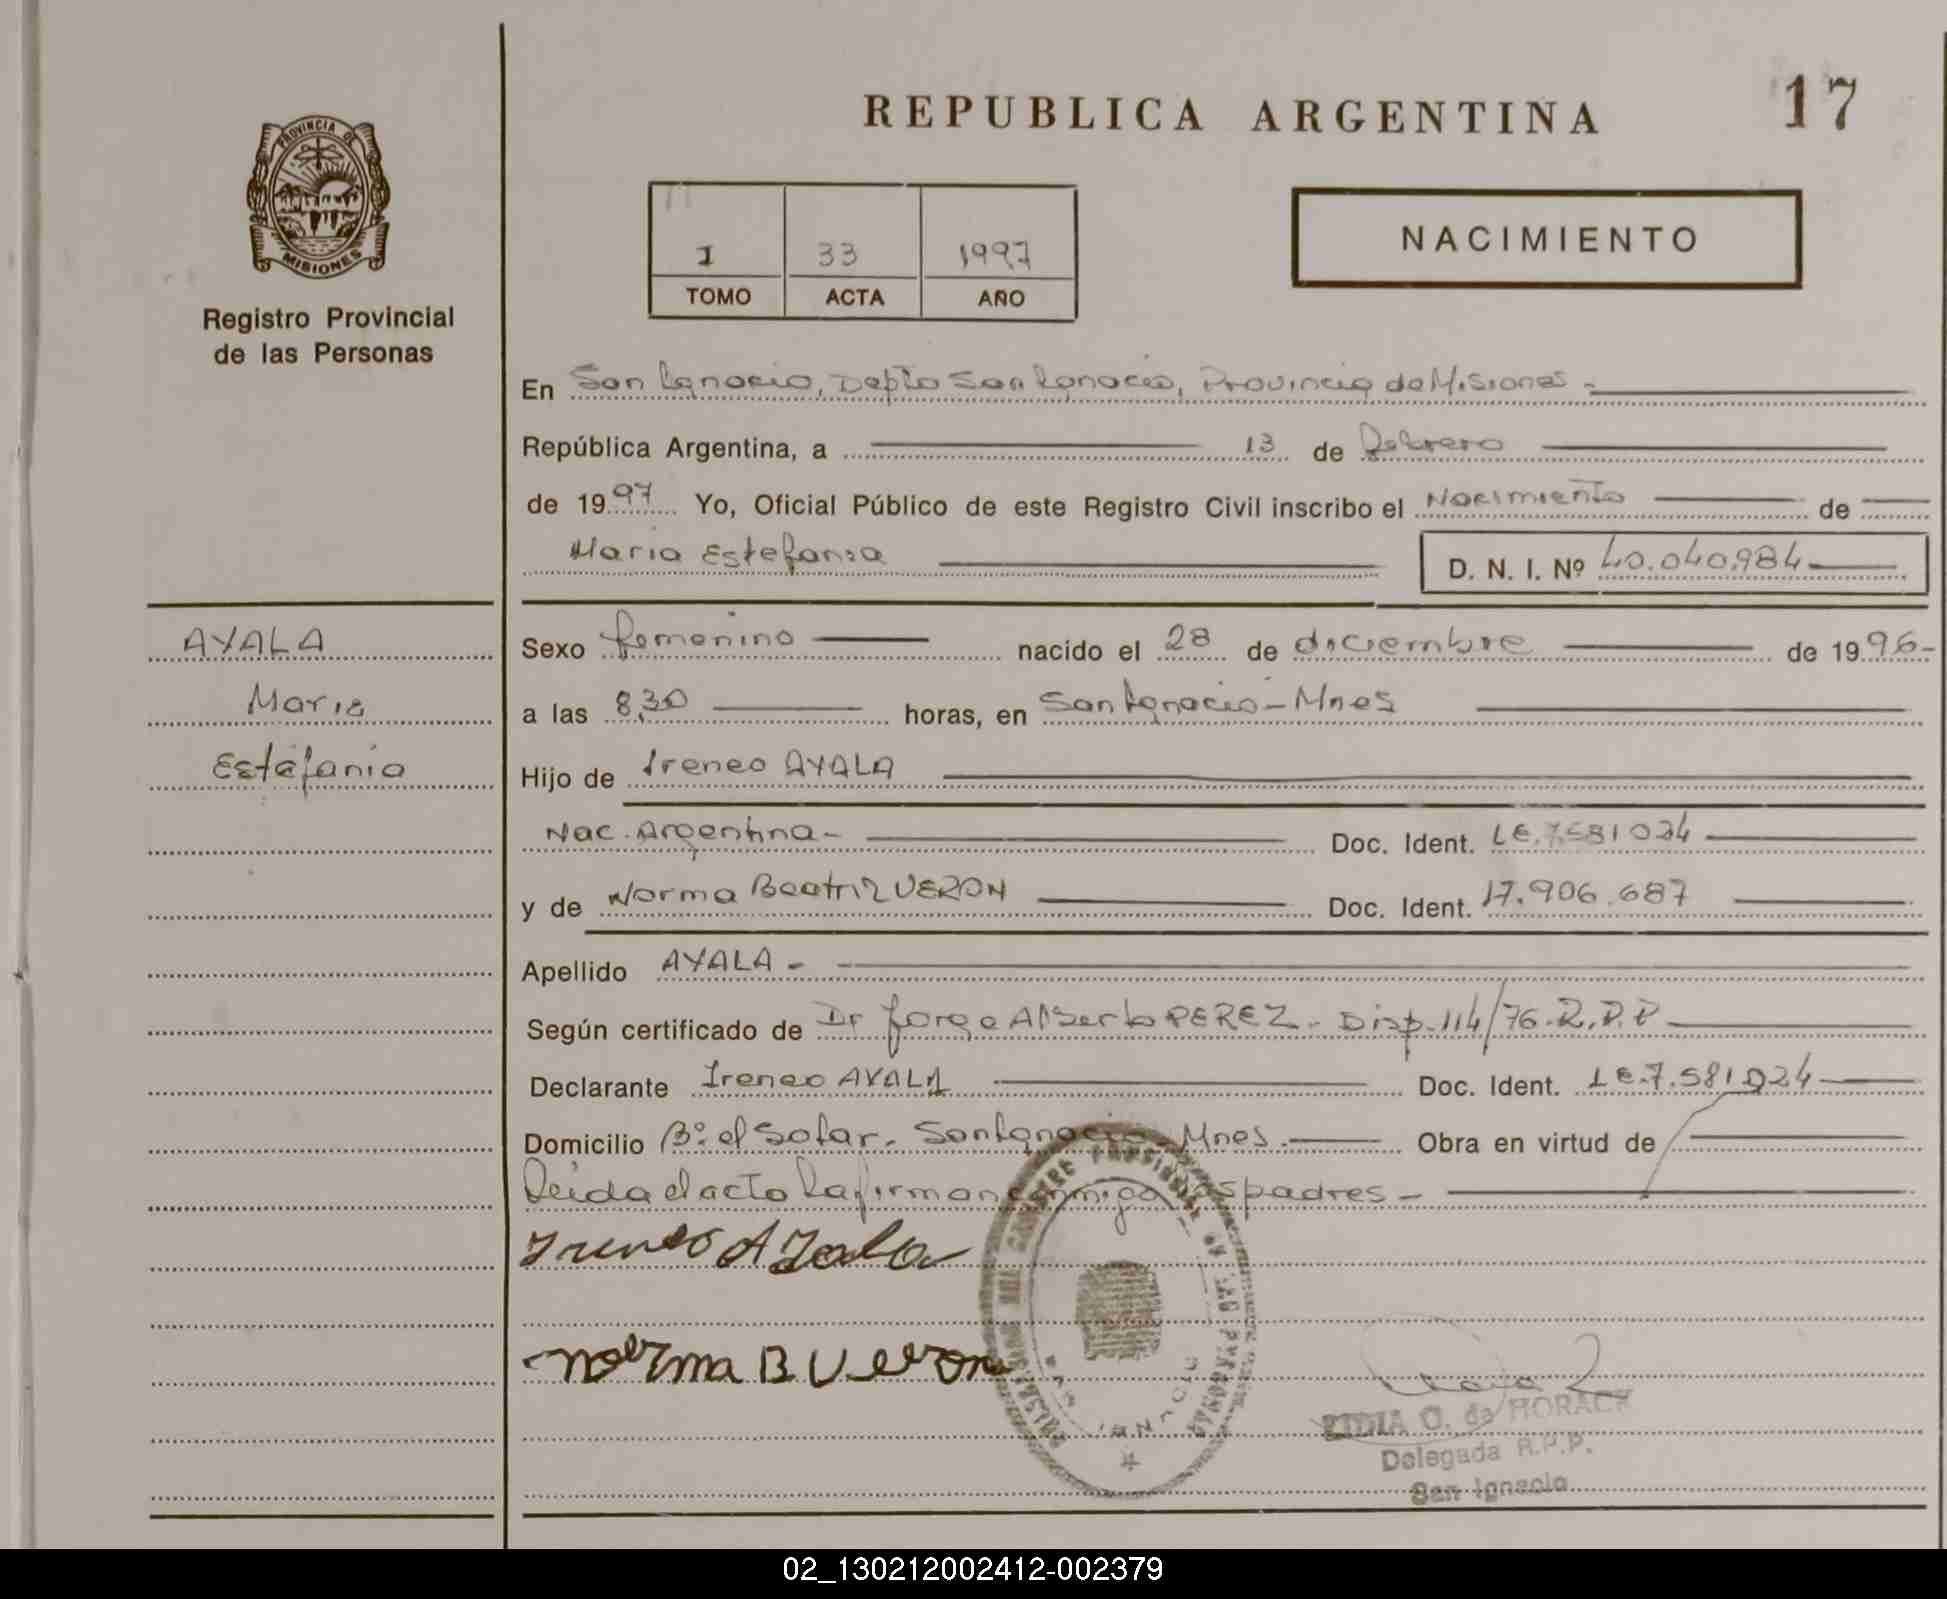 REPUBLICA ARGENTINA
17
PROVINCIA DE
MISIONES
Registro Provincial
de las Personas
I 33 1997
TOMO ACTA AÑO
NACIMIENTO
En San Ignacio, Depto San Ignacio, Provincia de Misiones -
República Argentina, a 13 de Febrero
de 1997 Yo, Oficial Público de este Registro Civil inscribo el Nacimiento de
Maria Estefania D. N. I. Nº 40.040.984
AYALA
Maria
Estefania
Sexo femenino nacido el 28 de diciembre de 1996-
a las 8,30 horas, en San Ignacio - Mnes
Hijo de Ireneo AYALA
Nac. Argentina - Doc. Ident. LE.7.581024
y de Norma Beatriz VERON Doc. Ident. 17.906.687
Apellido AYALA -
Según certificado de Dr Jorge Alberto PEREZ - Disp. 114/76.R.P.P
Declarante Ireneo AYALA Doc. Ident. LE.7.581.024
Domicilio Bº. el Solar. San Ignacio - Mnes. Obra en virtud de
Leida el acto la firman conmigo los padres -
Ireneo AYala
Norma B Veron
SAN IGNACIO
LIDIA O. de HORACK
Delegada R.P.P.
San Ignacio
02_130212002412-002379